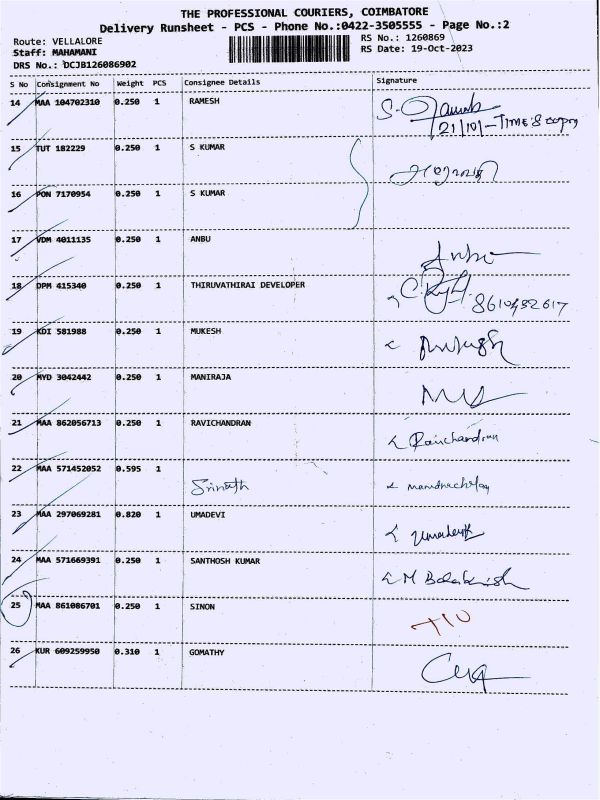 THE PROFESSIONAL COURIERS, COIMBATORE
Delivery Runsheet - PCS - Phone No.:0422-3505555 - Page No.:2
Route: VELLALORE
Staff: MAHAMANI
DRS No.: DCJB126086902
RS No.: 1260869
RS Date: 19-Oct-2023
S No Consignment No Weight PCS Consignee Details Signature
14 MAA 104702310 0.250 1 RAMESH
21/10/-TIME 8:00pm
15 TUT 182229 0.250 1 S KUMAR
16 PON 7170954 0.250 1 S KUMAR
17 VDM 4011135 0.250 1 ANBU Anbu
18 DPM 415340 0.250 1 THIRUVATHIRAI DEVELOPER
8610432617
19 KDI 581988 0.250 1 MUKESH
20 MYD 3042442 0.250 1 MANIRAJA
21 MAA 862056713 0.250 1 RAVICHANDRAN Ravichandran
22 MAA 571452052 0.595 1 Srinath
23 MAA 297069281 0.820 1 UMADEVI Umadevi
24 MAA 571669391 0.250 1 SANTHOSH KUMAR M Balakrish
25 MAA 861086701 0.250 1 SINON
26 KUR 609259950 0.310 1 GOMATHY